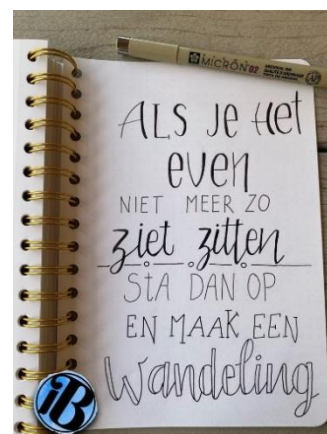 MICRON 02
ALS JE HET
EVEN
NIET MEER ZO
ziet zitten
STA DAN OP
EN MAAK EEN
Wandeling
iB